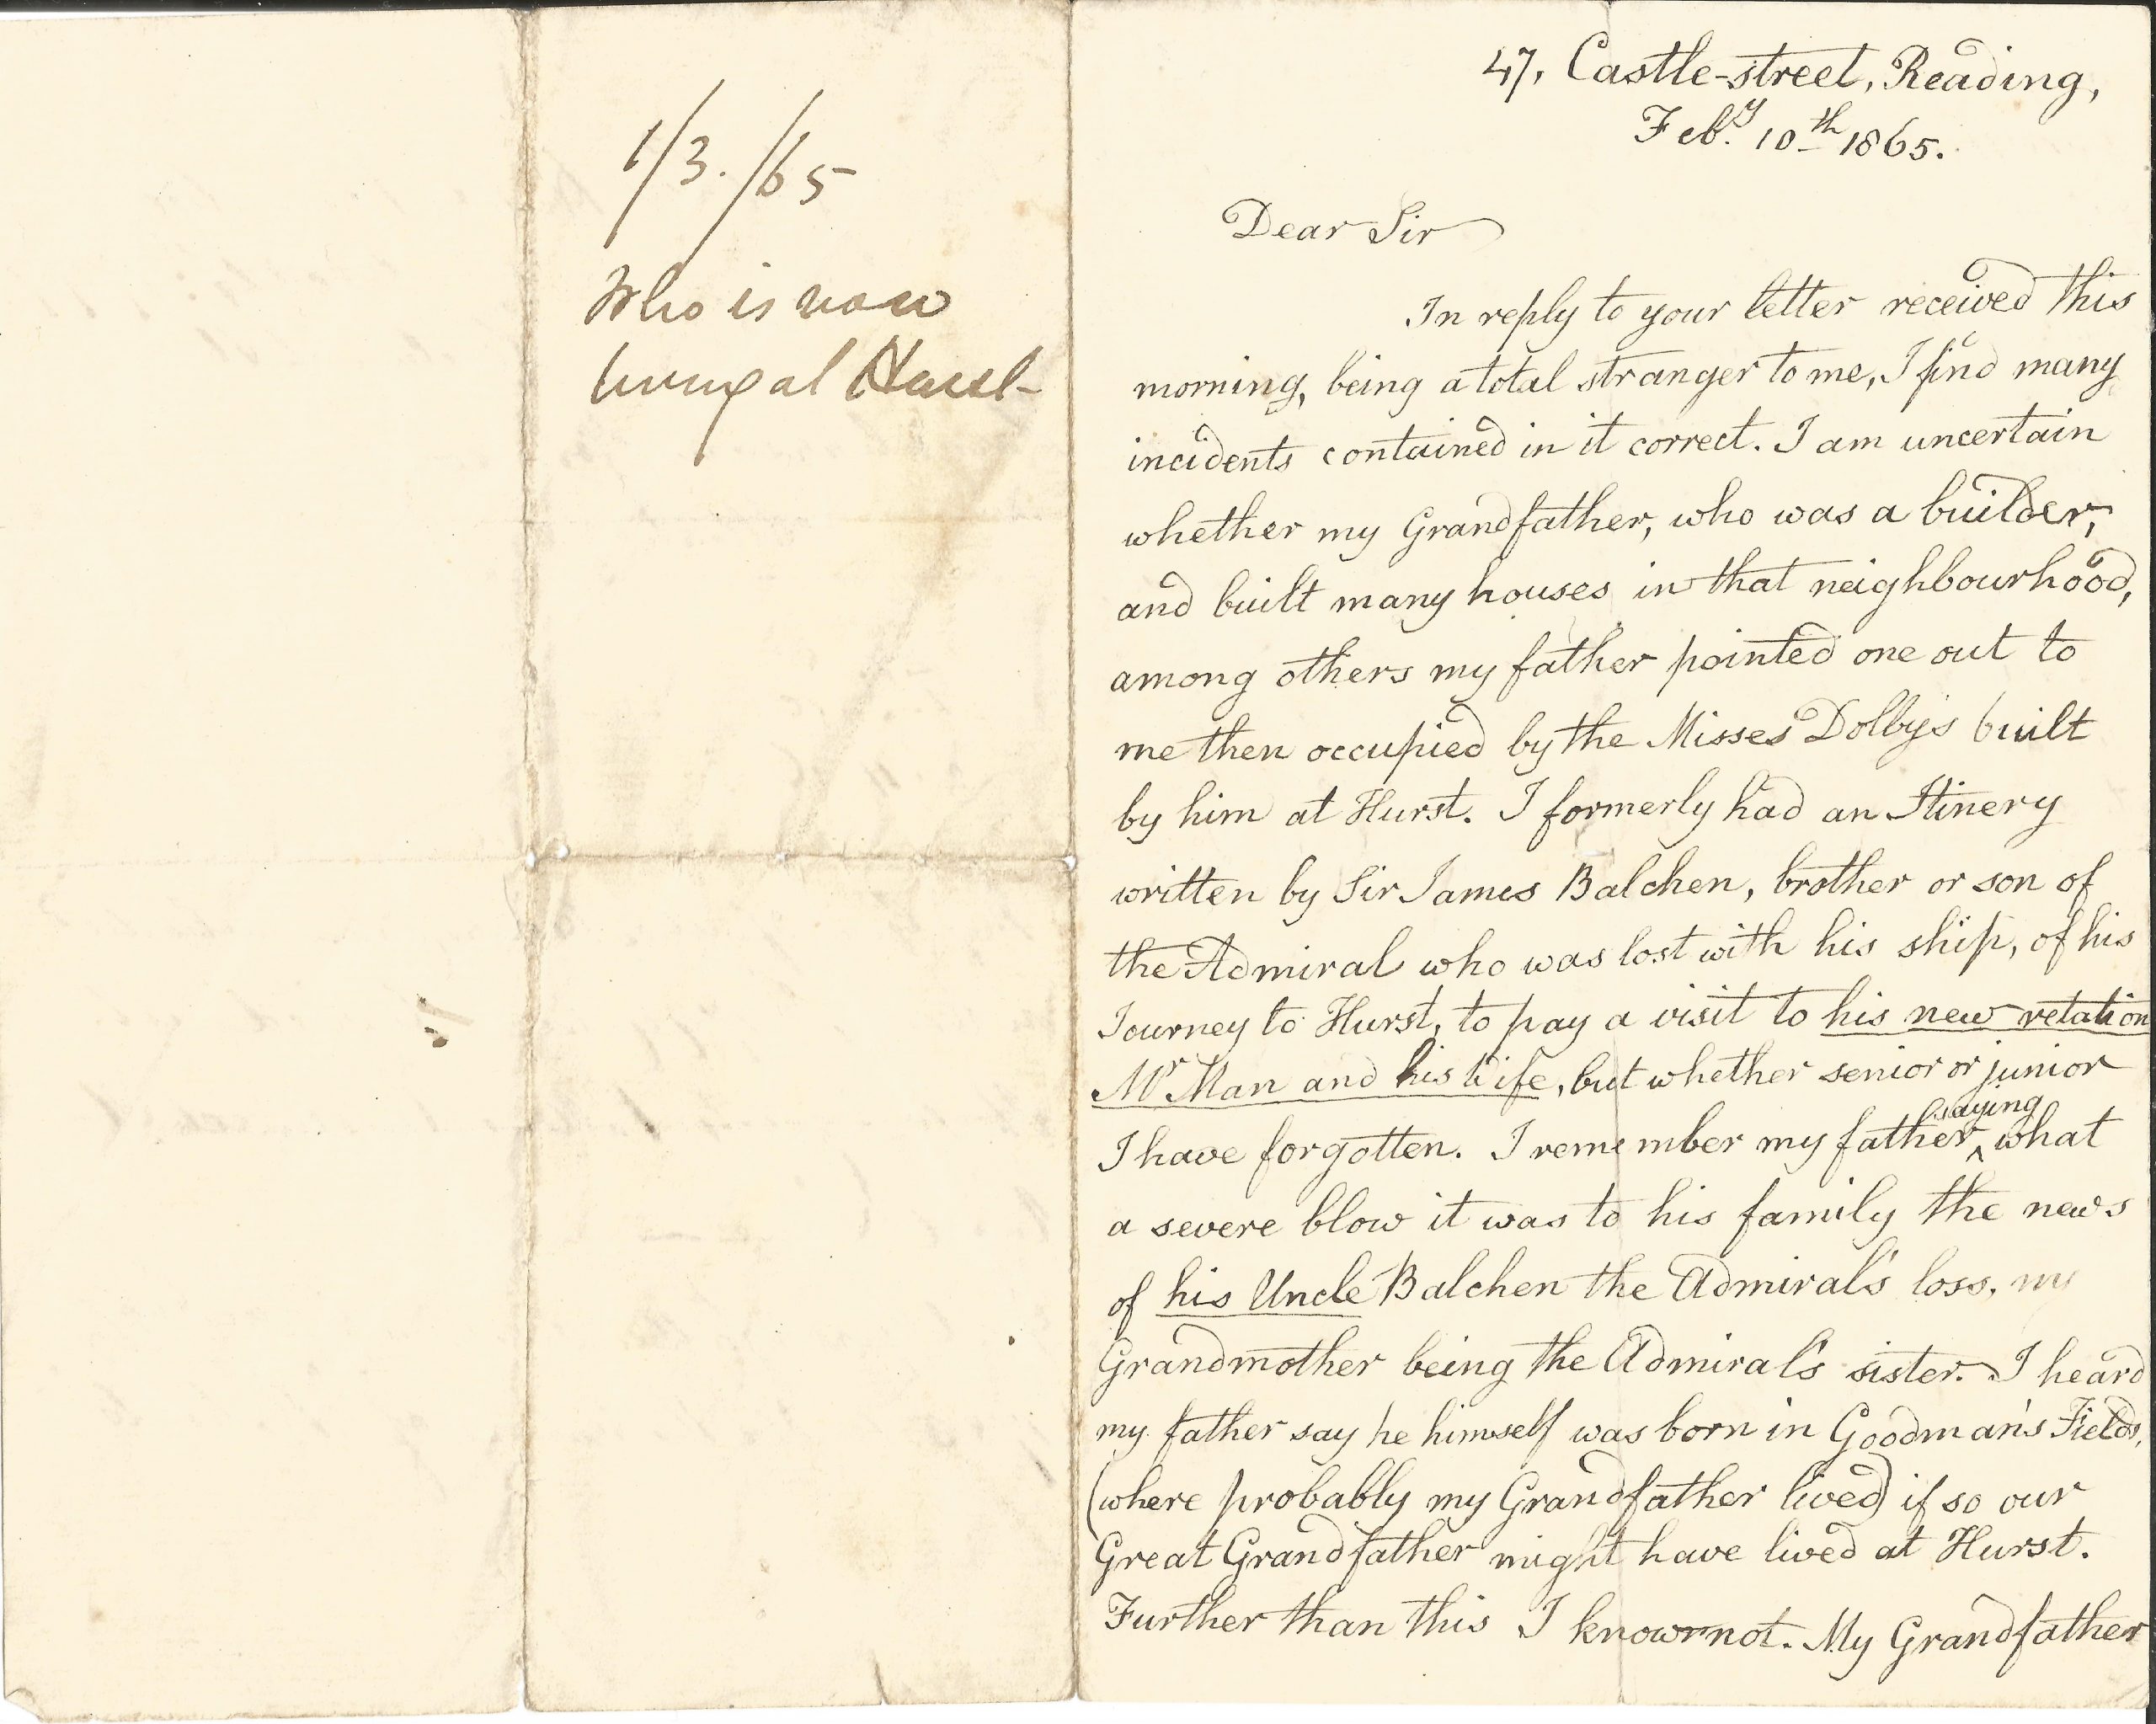 1/3./65
Who is now
living at Hurst
47, Castle-street, Reading,
Feby. 10th 1865.
Dear Sir
In reply to your letter received this
morning, being a total stranger to me, I find many
incidents contained in it correct. I am uncertain
whether my Grandfather, who was a builder,
and built many houses in that neighbourhood,
among others my father pointed one out to
me then occupied by the Misses Dolbys built
by him at Hurst. I formerly had an Itinery
written by Sir James Balchen, brother or son of
the Admiral who was lost with his ship, of his
Journey to Hurst, to pay a visit to his new relation
Mr Man and his Wife, but whether senior or junior
I have forgotten. I remember my father saying what
a severe blow it was to his family the news
of his Uncle Balchen the Admiral's loss, my
Grandmother being the Admiral's sister. I heard
my father say he himself was born in Goodman's Fields,
(where probably my Grandfather lived) if so our
Great Grandfather might have lived at Hurst.
Further than this I know not. My Grandfather